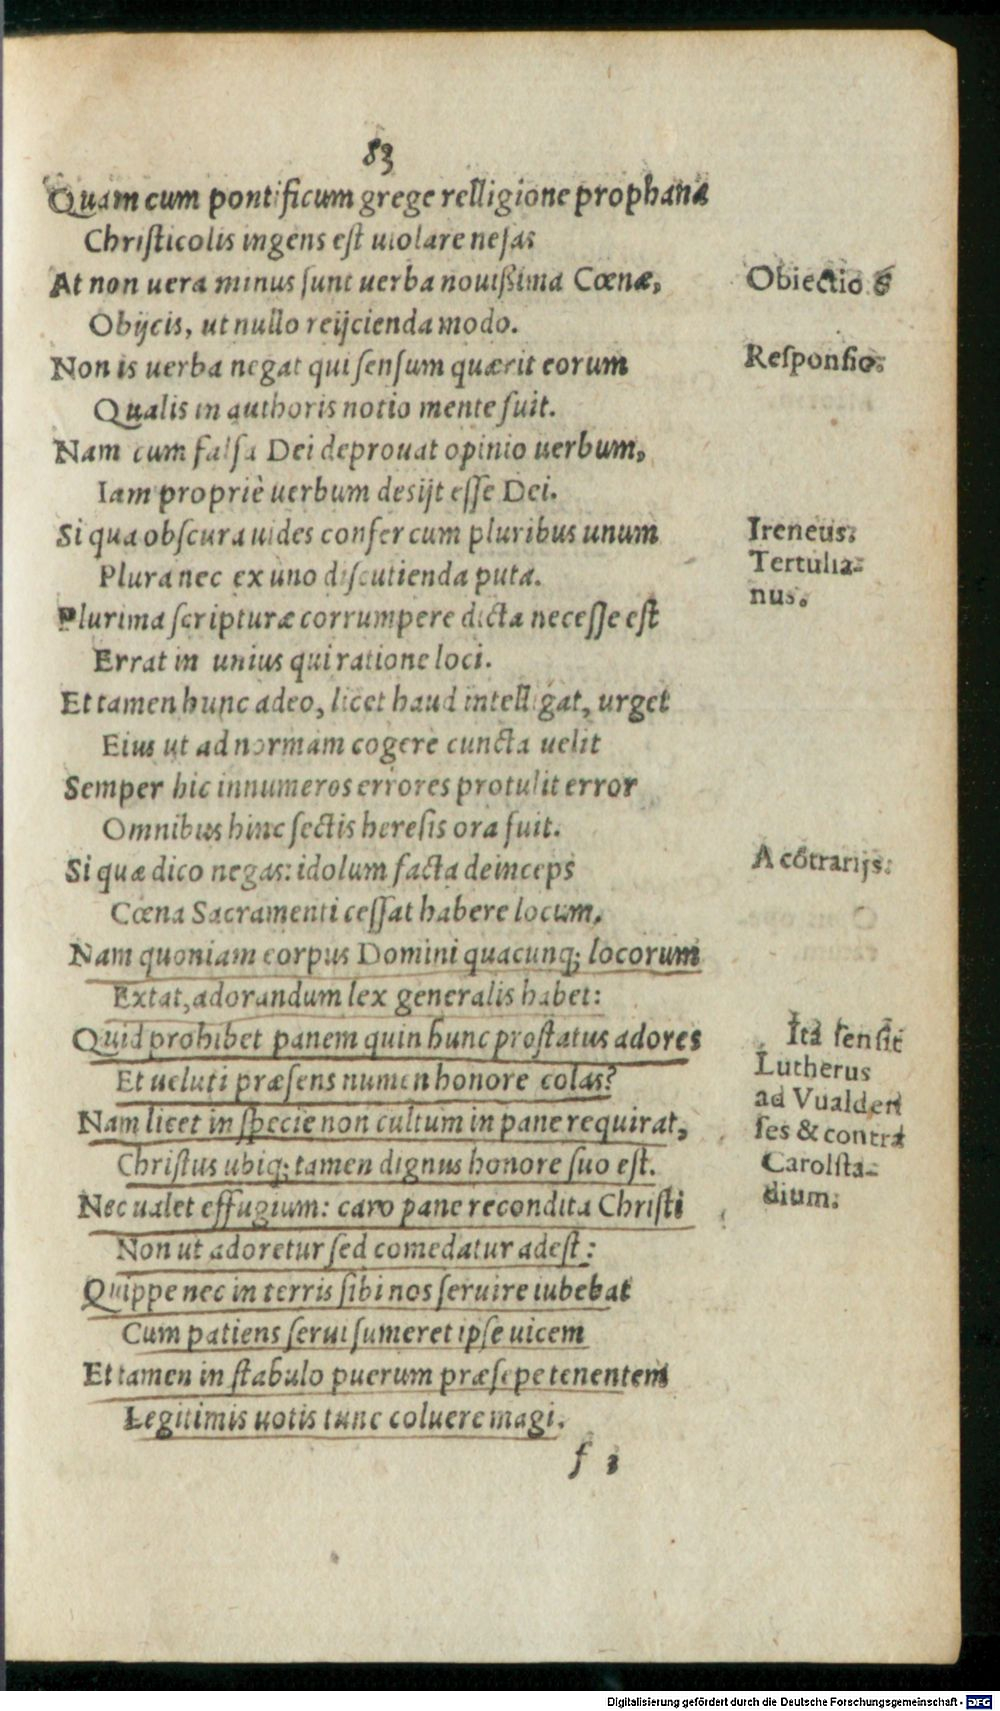 83
Quam cum pontificum grege relligione prophana
Christicolis ingens est uiolare nefas
At non uera minus sunt uerba nouißima Cœnæ,
Obijcis, ut nullo reijcienda modo.
Non is uerba negat qui sensum quærit eorum
Qualis in authoris notio mente fuit.
Nam cum falsa Dei deprouat opinio uerbum,
Iam propriè uerbum desijt esse Dei.
Si qua obscura uides confer cum pluribus unum
Plura nec ex uno discutienda puta.
Plurima scripturæ corrumpere dicta necesse est
Errat in unius qui ratione loci.
Et tamen hunc adeo, licet haud intelligat, urget
Eius ut ad normam cogere cuncta uelit
Semper hic innumeros errores protulit error
Omnibus hinc sectis heresis ora fuit.
Si quæ dico negas: idolum facta deinceps
Cœna Sacramenti cessat habere locum.
Nam quoniam corpus Domini quacunq; locorum
Extat, adorandum lex generalis habet:
Quid prohibet panem quin hunc prostatus adores
Et ueluti præsens numen honore colas?
Nam licet in specie non cultum in pane requirat,
Christus ubiq; tamen dignus honore suo est.
Nec ualet effugium: caro pane recondita Christi
Non ut adoretur sed comedatur adest:
Quippe nec in terris sibi nos seruire iubebat
Cum patiens serui sumeret ipse uicem
Et tamen in stabulo puerum præsepe tenentem
Legitimis uotis tunc coluere magi.
f 2
Obiectio 6
Responsio.
Ireneus.
Tertulia-
nus.
A cōtrarijs.
Ita sensit
Lutherus
ad Vualden
ses & contra
Carolsta-
dium.
Digitalisierung gefördert durch die Deutsche Forschungsgemeinschaft - DFG